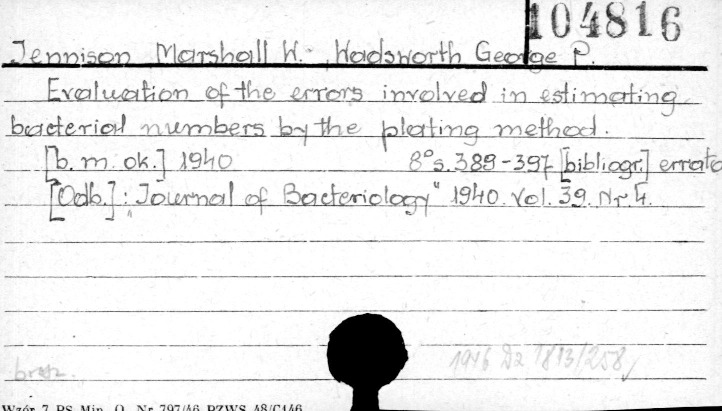 104816
Jennison Marshall W. Wadsworth George P.
Evaluation of the errors involved in estimating
bacterial numbers by the plating method.
[b. m. ok.] 1940 8° s. 389-397 [bibliogr.] errata
[Odb.]: „Journal of Bacteriology" 1940. Vol. 39. Nr 4.
brosz.
1946 Dz 1813/258/
Wzór 7 PS Min. O. Nr 797/46 PZWS 48/C146